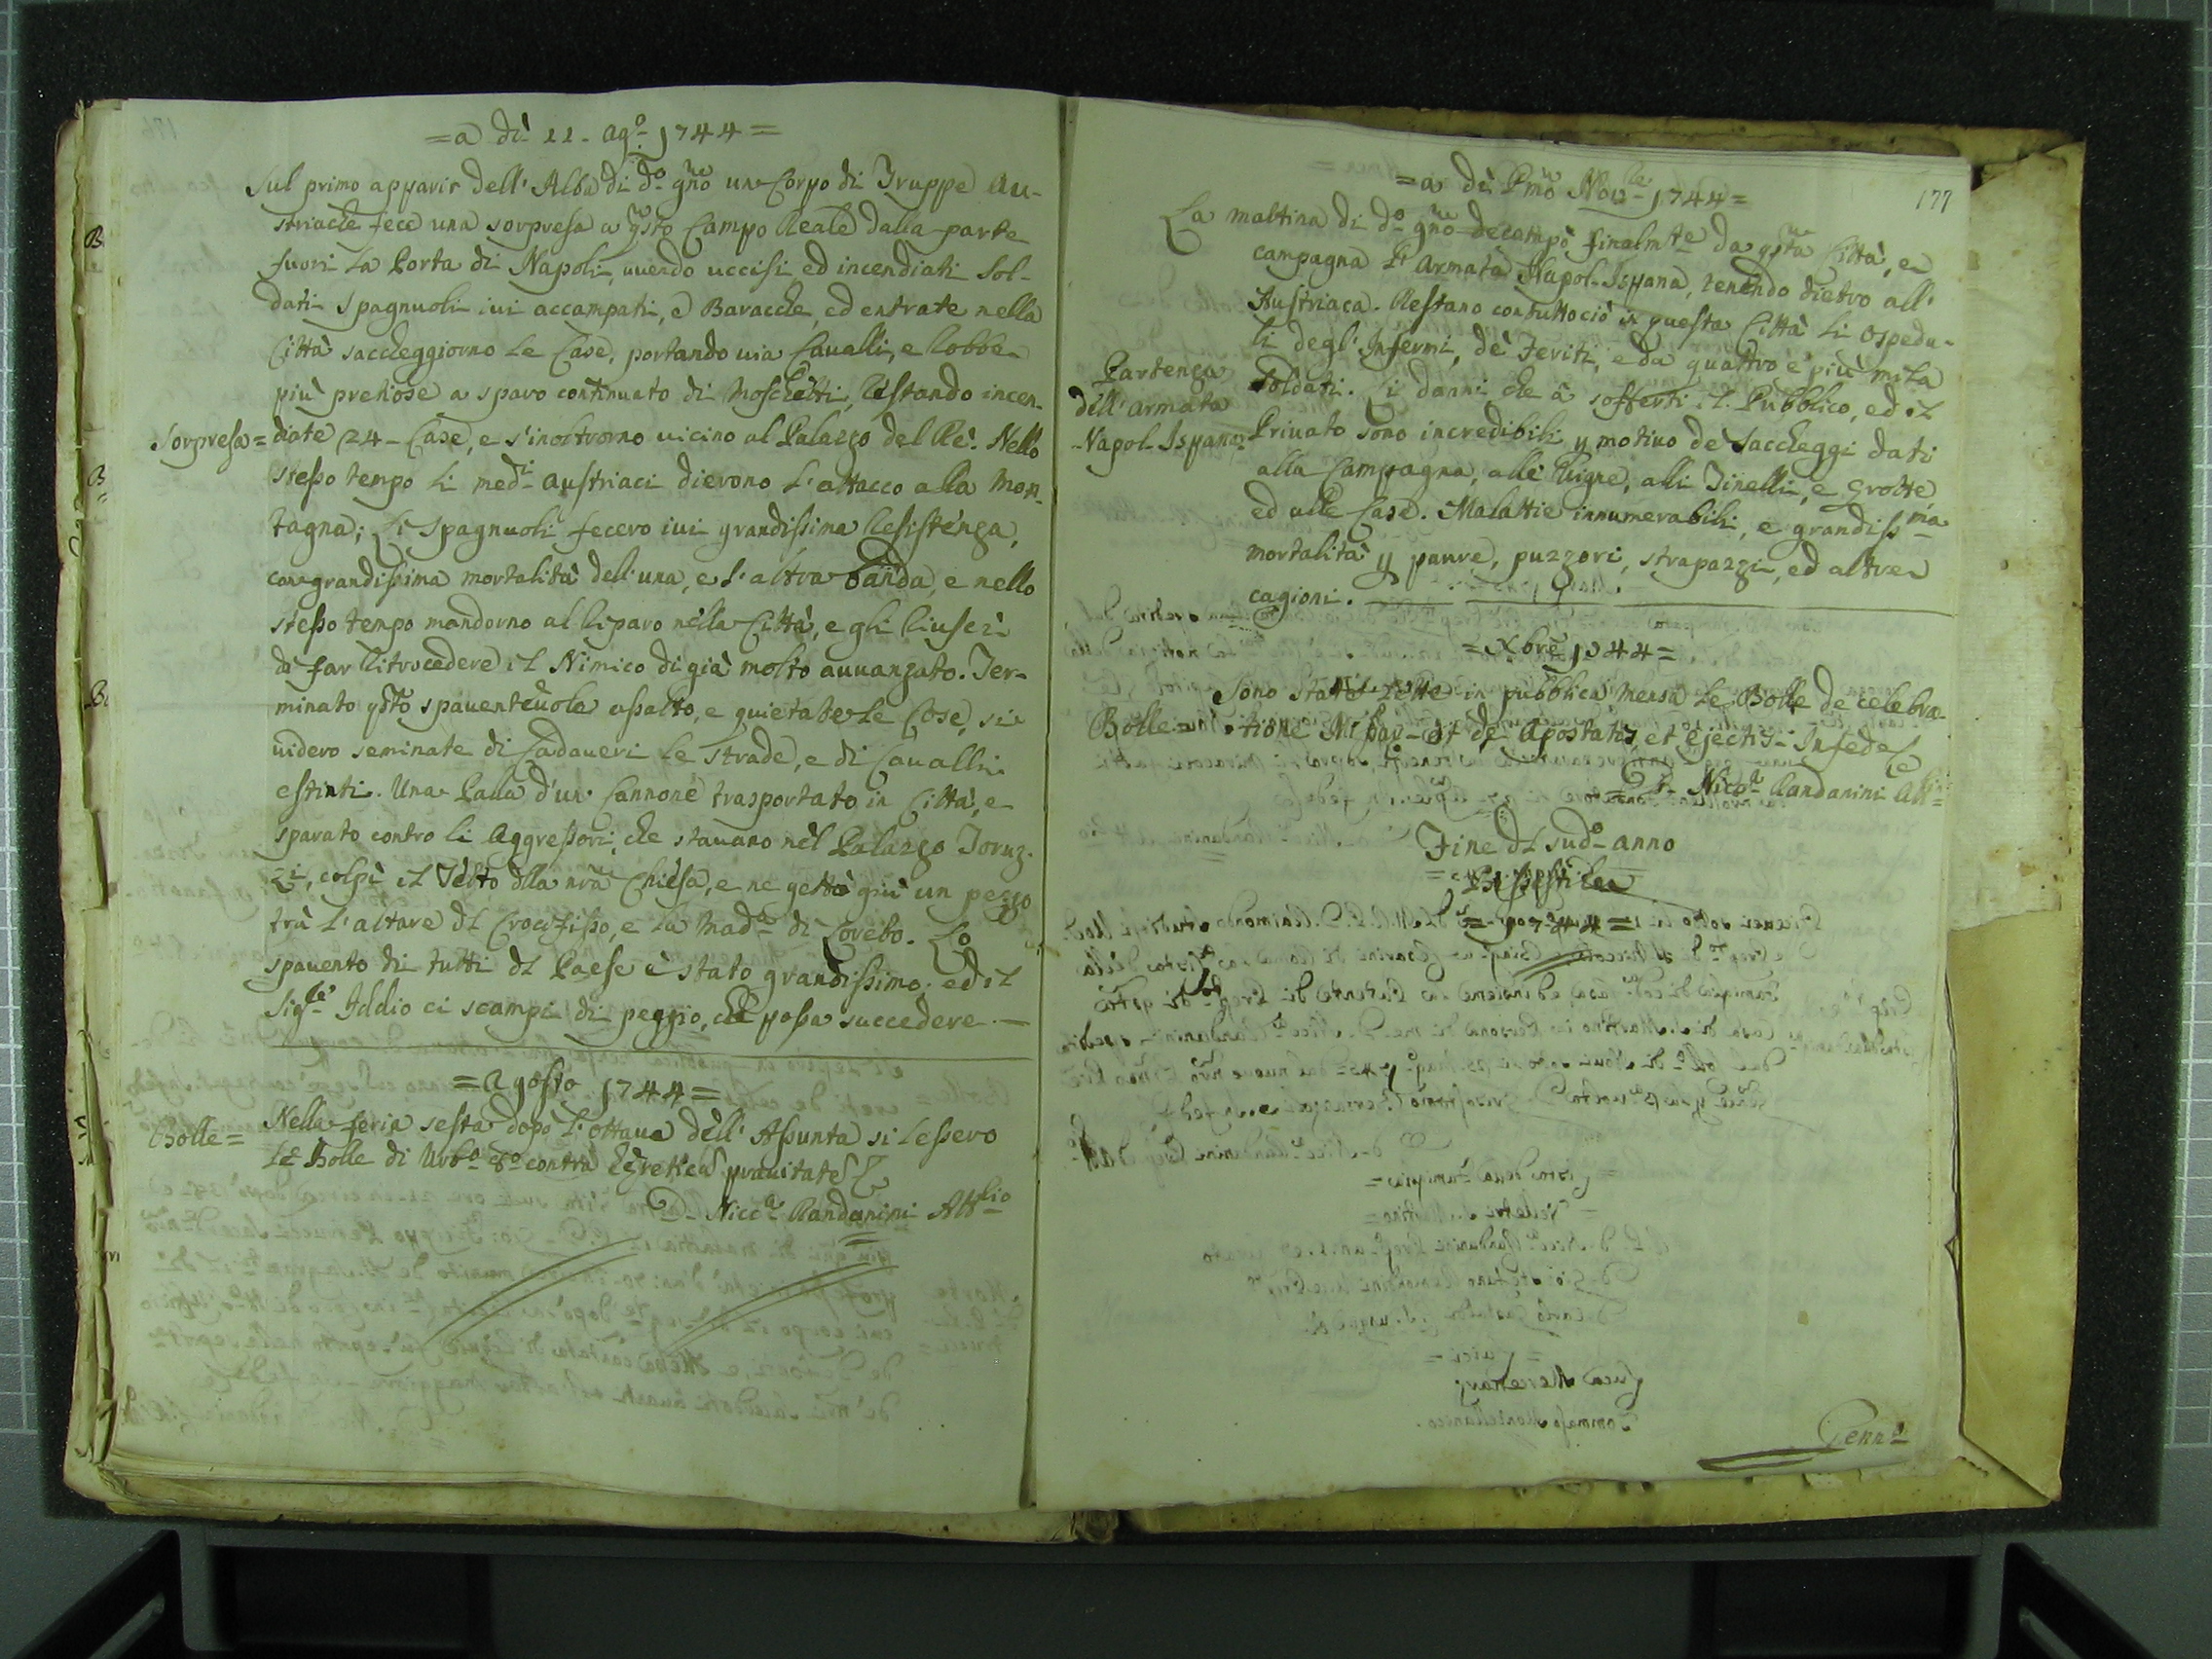 = a dì 11 - Ago. 1744 =
Sul primo apparir dell'Alba di do. gno un Corpo di Truppe Au-
striache fece una sorpresa a qsto Campo Reale dalla parte
fuori la Porta di Napoli, avendo uccisi ed incendiati Sol-
dati Spagnuoli ivi accampati, e Baracche, ed entrate nella
Città saccheggiorno le Case, portando via Cavalli, e Robbe
più pretiose a sparo continuato di Moschetti, Restando incen-
Sorpresa = diate 24 - Case, e s'inoltrorno vicino al Palazzo del Re. Nello
stesso tempo li medi. Austriaci dierono l'attacco alla Mon-
tagna; Li Spagnuoli fecero ivi grandissima Resistenza,
con grandissima mortalità dell'una, e l'altra banda, e nello
stesso tempo mandorno al Riparo nella Città, e gli Riuscì
di far Ritrocedere il Nimico di già molto avvanzato. Ter-
minato qsto spaventevole assalto, e quietate le Cose, si
videro seminate di Cadaveri le strade, e di Cavalli
estinti. Una Palla d'un Cannone trasportato in Città, e
sparato contro li Aggressori, che stavano nel Palazzo Toruz-
zi, colpì il Tetto dlla nra Chiesa, e ne gettò giù un pezzo
trà l'altare dl Crocifisso, e la Mada. di Loreto. Lo
spavento di tutti dl Paese è stato grandissimo; ed il
Sigre. Iddio ci scampi di peggio, che possa succedere. —
= Agosto 1744 =
Bolle = Nella feria sesta dopò l'ottava dell'Assunta si lessero
le Bolle di Urbo. 8o. contra hereticã pravitatẽ
D. Niccа Randanini Attlio
177
= a dì Pmo Nov.le 1744 =
La mattina di do. gno decampò finalmte da qsta Città, e
campagna l'Armata Napol-Ispana, tenendo dietro all'
Austriaca. Restano contuttociò in questa Città li Ospeda-
li degl'Infermi, de Feriti, e da quattro e più mila
Partenza
dell'Armata
Napol-Ispana =
Soldati. Li danni che à sofferti il Pubblico, ed il
Privato sono incredibili p motivo de Saccheggi dati
alla Campagna, alle Vigne, alli Tinelli, e Grotte,
ed alle Case. Malattie innumerabili, e grandissma
mortalità p paure, puzzori, strapazzi, ed altre
cagioni.
= Xbre 1744 =
Sono state lette in pubblica Mensa le Bolle de celebra-
Bolle = tione Missar - et de Apostatis, et ejectis - In fede
D. Nicca Randanini Att
Fine dl sudo. anno
Bisestile
= 1744 =
Genna